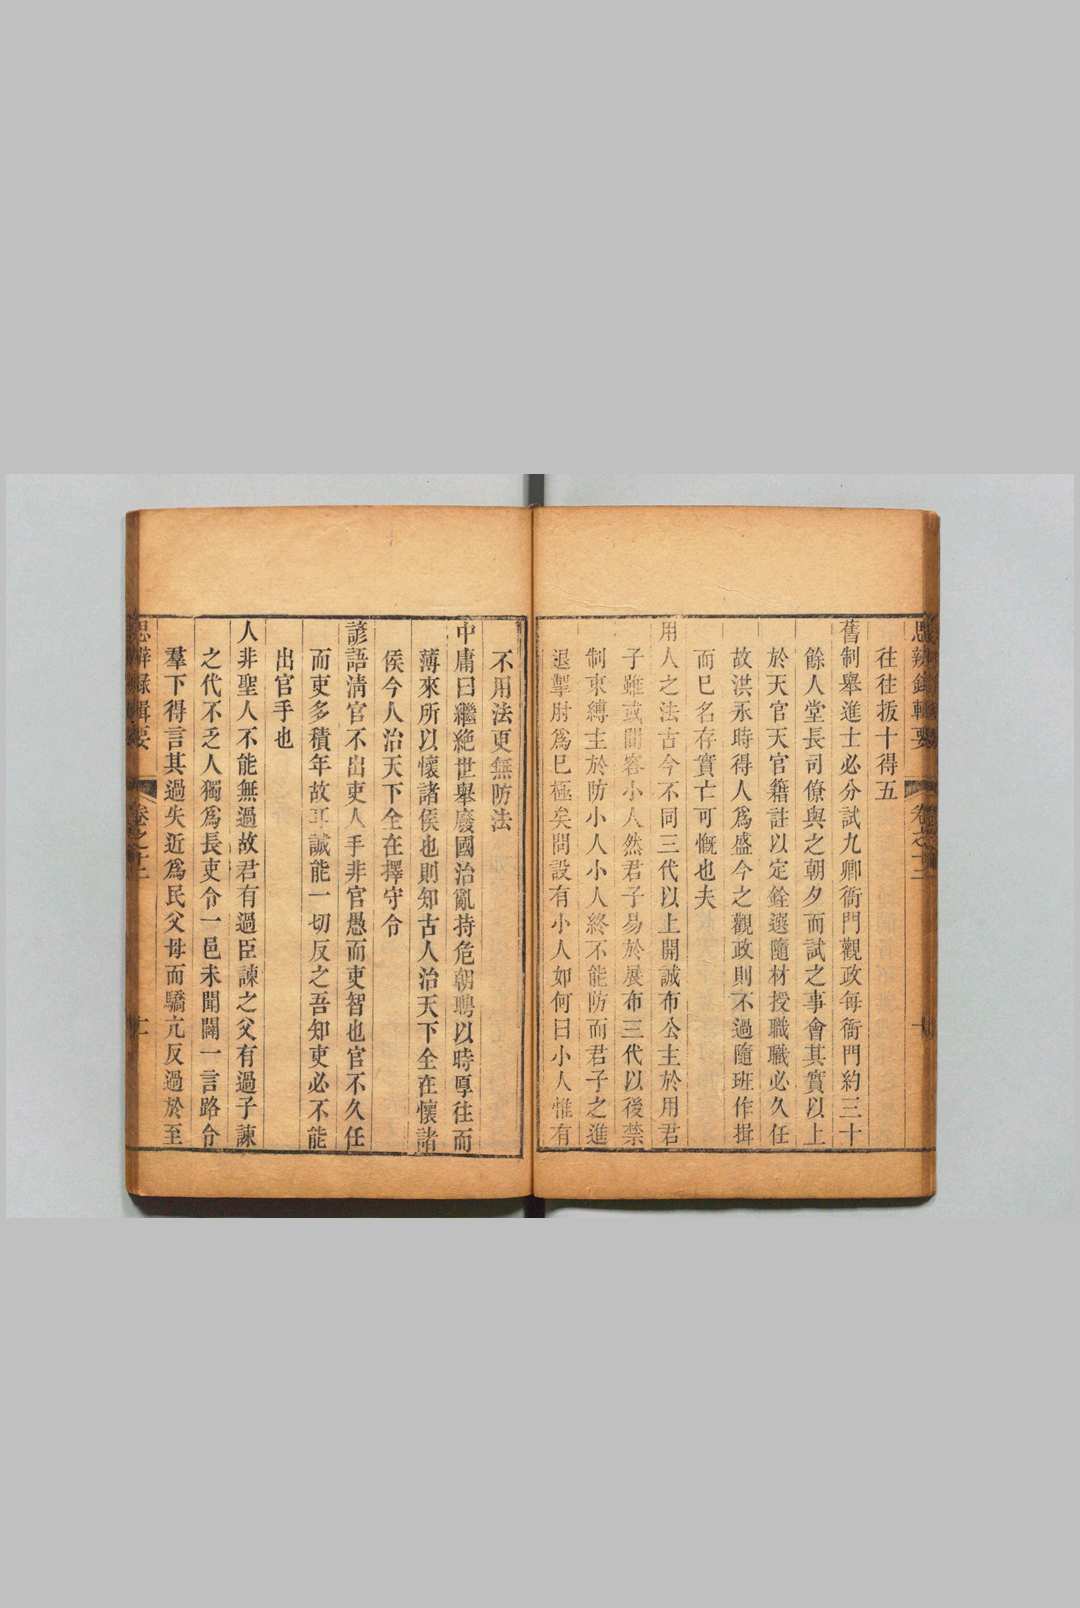 思辨錄輯要 卷之十二
往往拔十得五
舊制舉進士必分試九卿衙門觀政每衙門約三十
餘人堂長司僚與之朝夕而試之事會其實以上
於天官天官籍註以定銓選隨材授職職必久任
故洪永時得人為盛今之觀政則不過隨班作揖
而已名存實亡可慨也夫
用人之法古今不同三代以上開誠布公主於用君
子雖或間容小人然君子易於展布三代以後禁
制束縛主於防小人小人終不能防而君子之進
退掣肘爲已極矣問設有小人如何曰小人惟有
不用法更無防法
中庸曰繼絶世舉廢國治亂持危朝聘以時厚往而
薄來所以懷諸侯也則知古人治天下全在懷諸
侯今人治天下全在擇守令
諺語清官不出吏人手非官愚而吏智也官不久任
而吏多積年故耳誠能一切反之吾知吏必不能
出官手也
人非聖人不能無過故君有過臣諫之父有過子諫
之代不乏人獨爲長吏令一邑未聞闢一言路令
羣下得言其過失近爲民父母而驕亢反過於至
思辨錄輯要 卷之十二